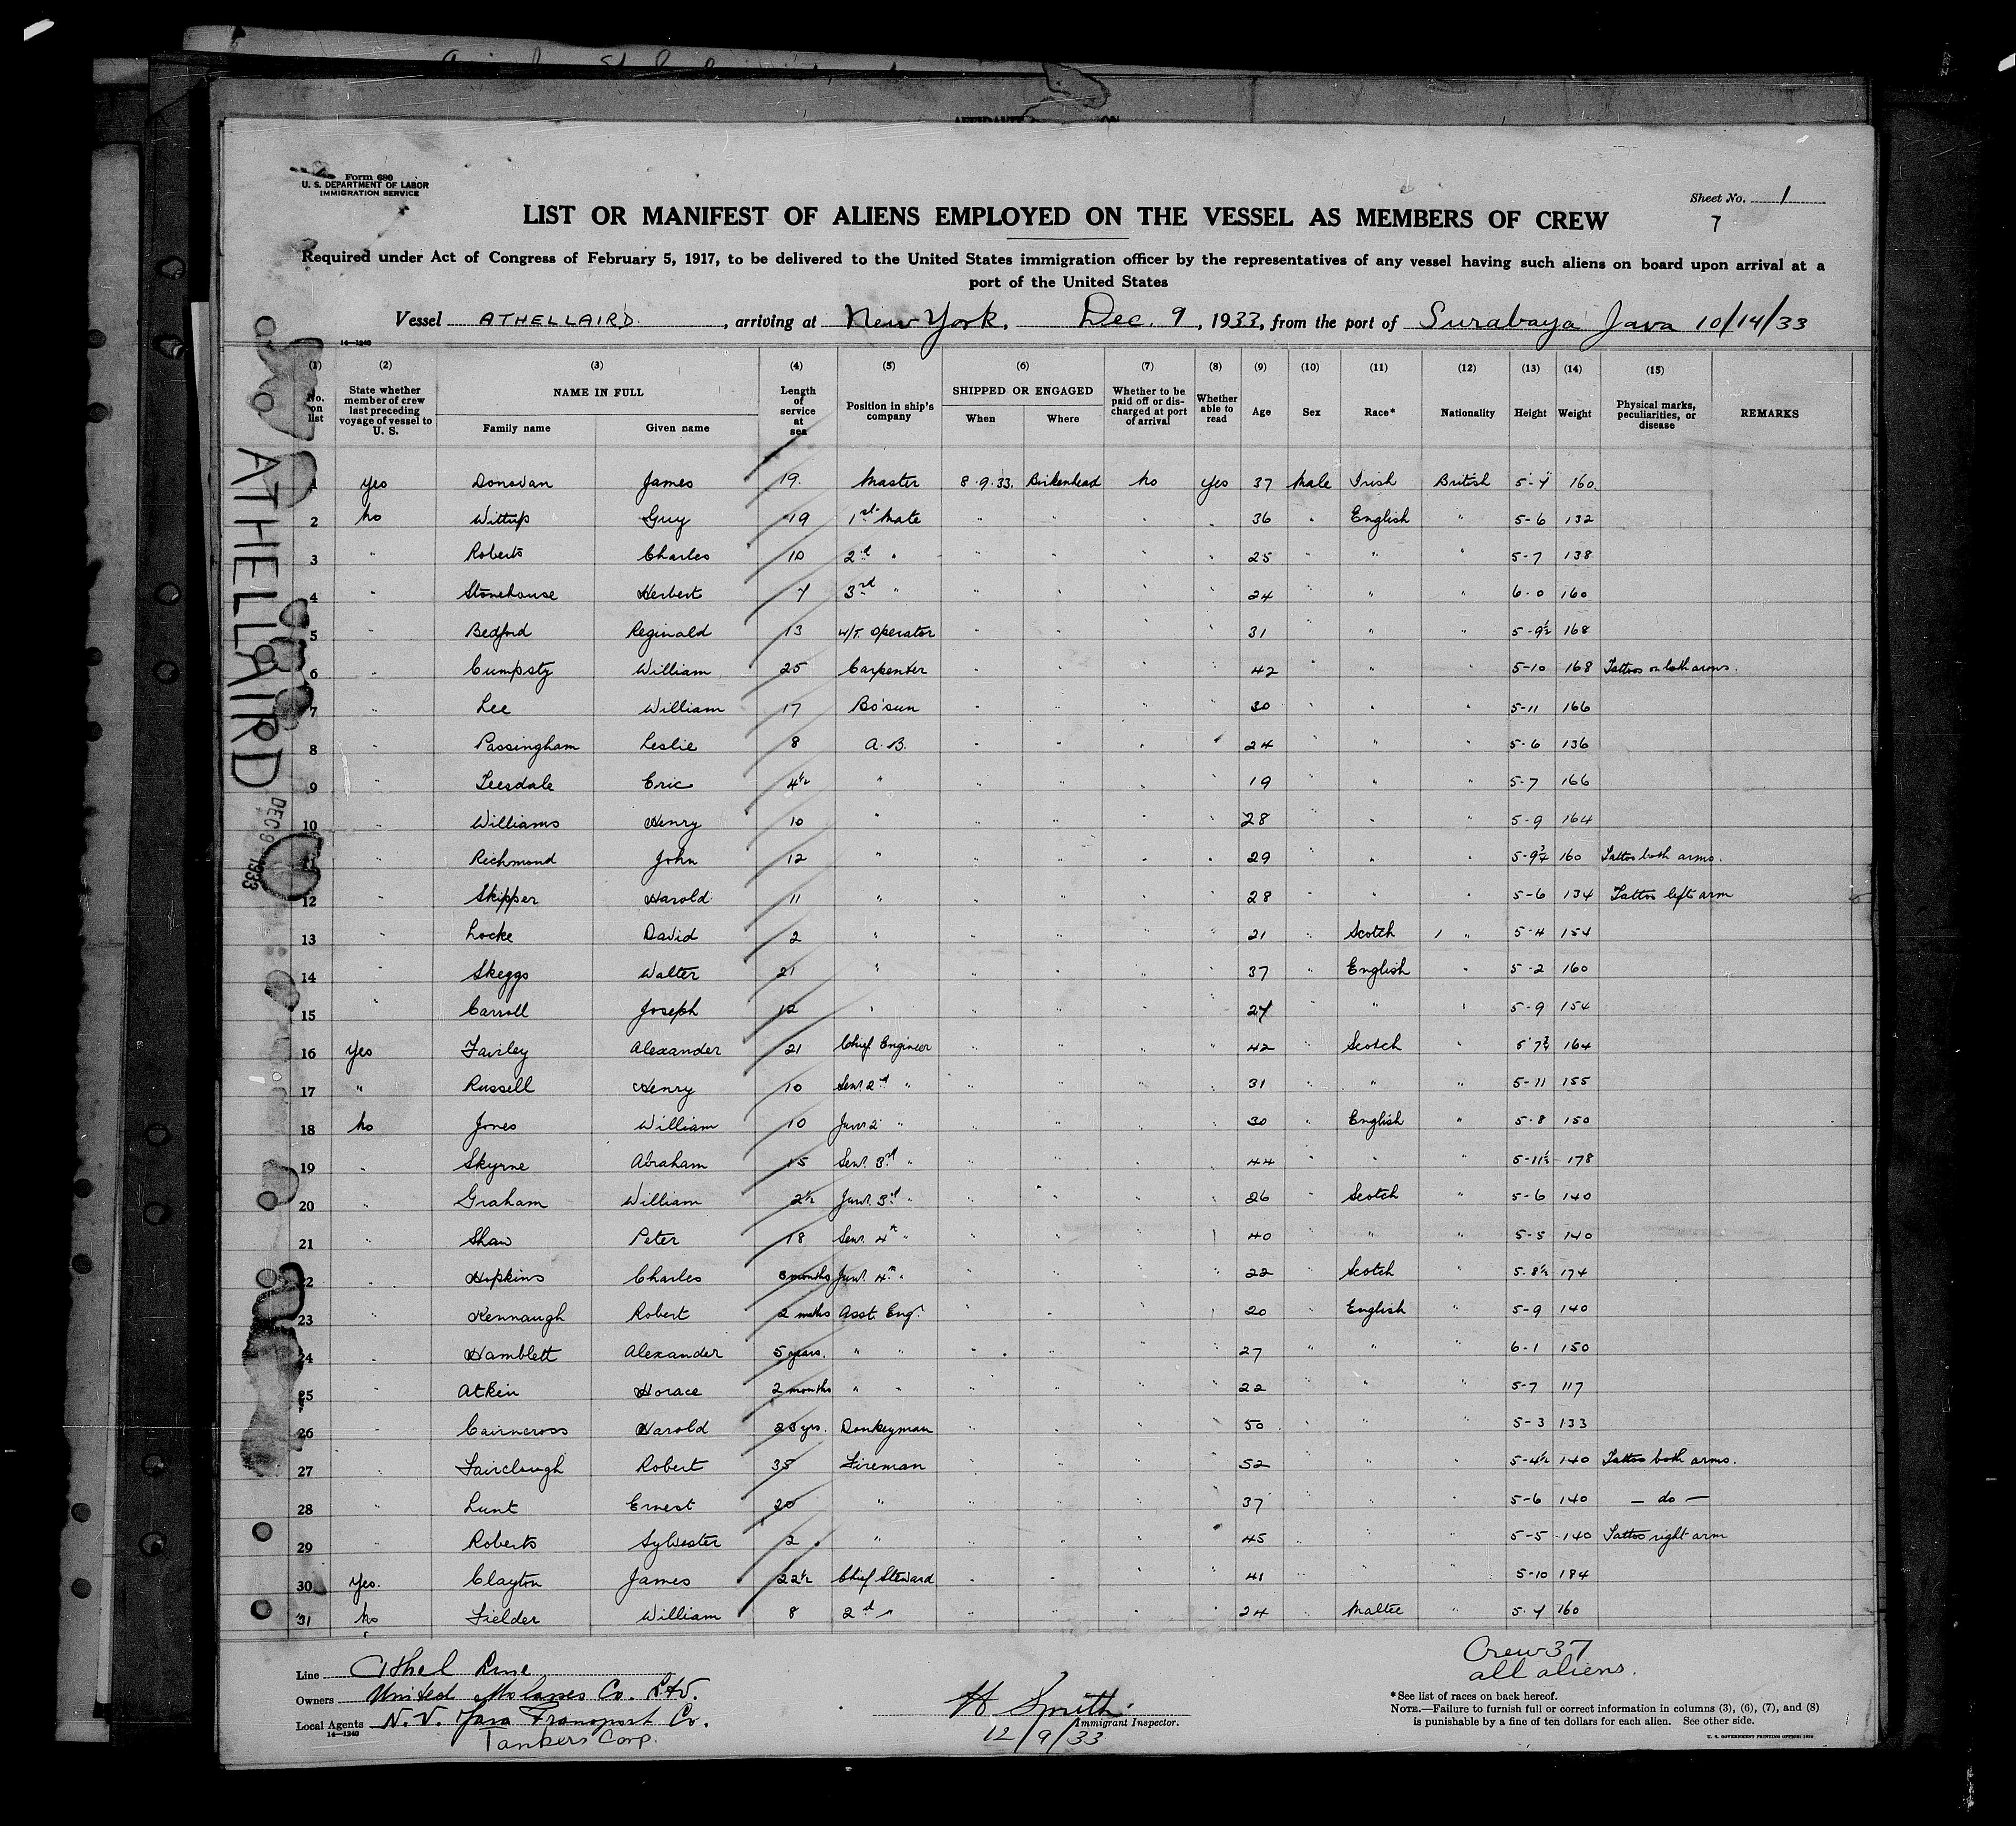 Form 680
U. S. DEPARTMENT OF LABOR
IMMIGRATION SERVICE
Sheet No. 1
7
LIST OR MANIFEST OF ALIENS EMPLOYED ON THE VESSEL AS MEMBERS OF CREW
Required under Act of Congress of February 5, 1917, to be delivered to the United States immigration officer by the representatives of any vessel having such aliens on board upon arrival at a
port of the United States
Vessel ATHELLAIRD, arriving at New York, Dec. 9, 1933, from the port of Surabaya Java 10/14/33
14—1240
(1) (2) (3) (4) (5) (6) (7) (8) (9) (10) (11) (12) (13) (14) (15)
No. on list State whether member of crew last preceding voyage of vessel to U. S. NAME IN FULL Family name Given name Length of service at sea Position in ship's company SHIPPED OR ENGAGED When Where Whether to be paid off or discharged at port of arrival Whether able to read Age Sex Race* Nationality Height Weight Physical marks, peculiarities, or disease REMARKS
1 Yes Donovan James 19. Master 8.9.33. Birkenhead No Yes 37 Male Irish British 5-4 160.
2 No Wittup Guy 19 1st Mate " " " " 36 " English " 5-6 132
3 " Roberts Charles 10 2d " " " " " 25 " " " 5-7 138
4 " Stonehouse Herbert 7 3rd " " " " " 24 " " " 6-0 160
5 " Bedford Reginald 13 W/T. Operator " " " " 31 " " " 5-9½ 168
6 " Cumpsty William 25 Carpenter " " " " 42 " " " 5-10 168 Tattoos on both arms.
7 " Lee William 17 Bo'sun " " " " 30 " " " 5-11 166
8 " Passingham Leslie 8 A.B. " " " " 24 " " " 5-6 136
9 " Teesdale Eric 4½ " " " " " 19 " " " 5-7 166
10 " Williams Henry 10 " " " " " 28 " " " 5-9 164
11 " Richmond John 12 " " " " " 29 " " " 5-9¾ 160 Tattoo both arms.
12 " Skipper Harold 11 " " " " " 28 " " " 5-6 134 Tattoo left arm
13 " Locke David 2 " " " " " 21 " Scotch " 5-4 154
14 " Skeggs Walter 21 " " " " " 37 " English " 5-2 160
15 " Carroll Joseph 12 " " " " " 27 " " " 5-9 154
16 Yes Fairley Alexander 21 Chief Engineer " " " " 42 " Scotch " 5 7¾ 164
17 " Russell Henry 10 Senr 2d " " " " " 31 " " " 5-11 155
18 No Jones William 10 Junr 2 " " " " " 30 " English " 5-8 150
19 " Skyrne Abraham 15 Senr. 3rd " " " " " 44 " " " 5-11½ 178
20 " Graham William 2½ Junr. 3d " " " " " 26 " Scotch " 5-6 140
21 " Shaw Peter 18 Senr. 4th " " " " 40 " " " 5-5 140
22 " Hopkins Charles months Junr. 4th " " " " " 22 " Scotch " 5.8½ 174
23 " Kennaugh Robert 2 mnths Asst. Engr. " " " " 20 " English " 5-9 140
24 " Hamblett Alexander 5 years. " " " " " 27 " " " 6-1 150
25 " Atkin Horace 2 months " " " " " " 22 " " " 5-7 117
26 " Cairncross Harold 28 yrs. Donkeyman " " " " 50 " " " 5-3 133
27 " Fairclough Robert 35 Fireman " " " " 52 " " " 5-4½ 140 Tattoo both arms.
28 " Lunt Ernest 20 " " " " " 37 " " " 5-6 140 — do —
29 " Roberts Sylvester 2 " " " " " 45 " " " 5-5 140 Tattoo right arm
30 Yes. Clayton James 22½ Chief Steward " " " " 41 " " " 5-10 184
31 No Fielder William 8 2d " " " " " 24 " Maltee " 5.4 160
ATHELLAIRD
DEC 9 1933
Crew 37
all aliens.
Line Athel Line
Owners United Molasses Co. Ltd.
Local Agents N. V. Java Transport Co.
14—1240
Tankers Corp.
H Smith
Immigrant Inspector.
12/9/33
*See list of races on back hereof.
NOTE.—Failure to furnish full or correct information in columns (3), (6), (7), and (8)
is punishable by a fine of ten dollars for each alien. See other side.
U. S. GOVERNMENT PRINTING OFFICE: